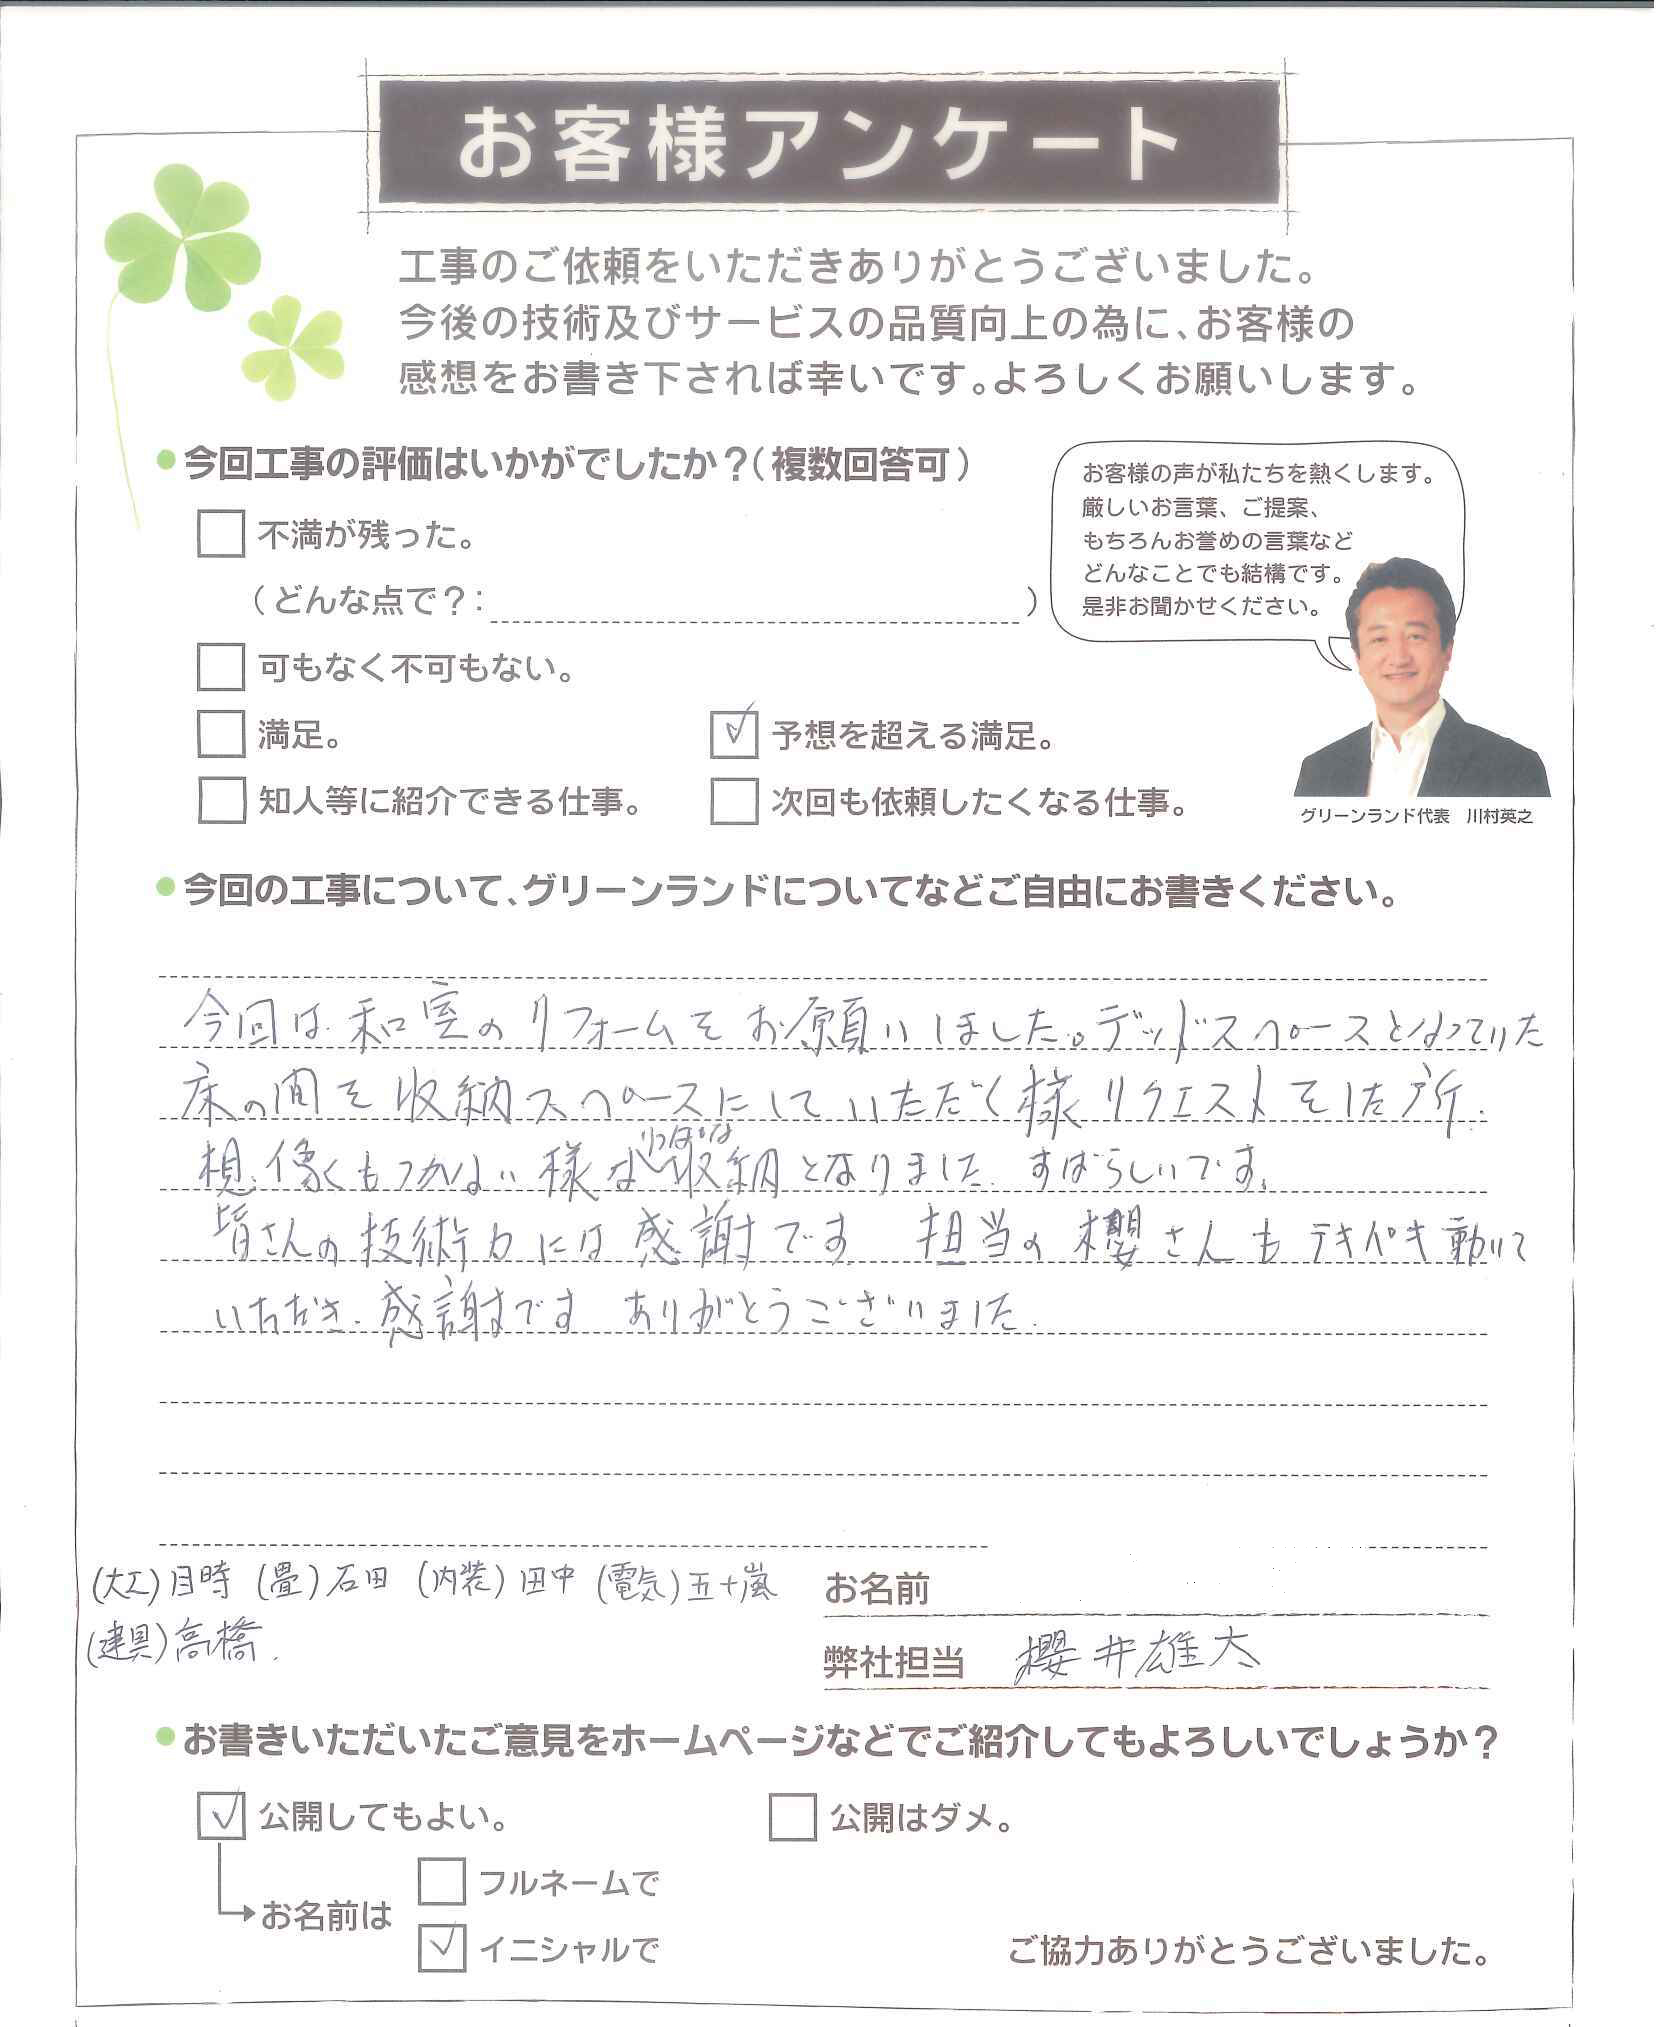 お客様アンケート
工事のご依頼をいただきありがとうございました。
今後の技術及びサービスの品質向上の為に、お客様の
感想をお書き下されば幸いです。よろしくお願いします。
今回工事の評価はいかがでしたか？（複数回答可）
不満が残った。
（どんな点で？： ）
可もなく不可もない。
満足。
予想を超える満足。
知人等に紹介できる仕事。
次回も依頼したくなる仕事。
お客様の声が私たちを熱くします。
厳しいお言葉、ご提案、
もちろんお誉めの言葉など
どんなことでも結構です。
是非お聞かせください。
グリーンランド代表 川村英之
今回の工事について、グリーンランドについてなどご自由にお書きください。
今回は和室のリフォームをお願いしました。デッドスペースとなっていた
床の間を収納スペースにしていただく様リクエストをした所.
想像もつかない様なりっぱな収納となりました. すばらしいです.
皆さんの技術力には感謝です. 担当の櫻さんもテキパキ動いて
いただき.感謝です ありがとうございました.
(大工)目時 (畳)石田 (内装)田中 (電気)五十嵐
(建具)高橋.
お名前
弊社担当 櫻井雄太
お書きいただいたご意見をホームページなどでご紹介してもよろしいでしょうか？
公開してもよい。
公開はダメ。
お名前は
フルネームで
イニシャルで
ご協力ありがとうございました。